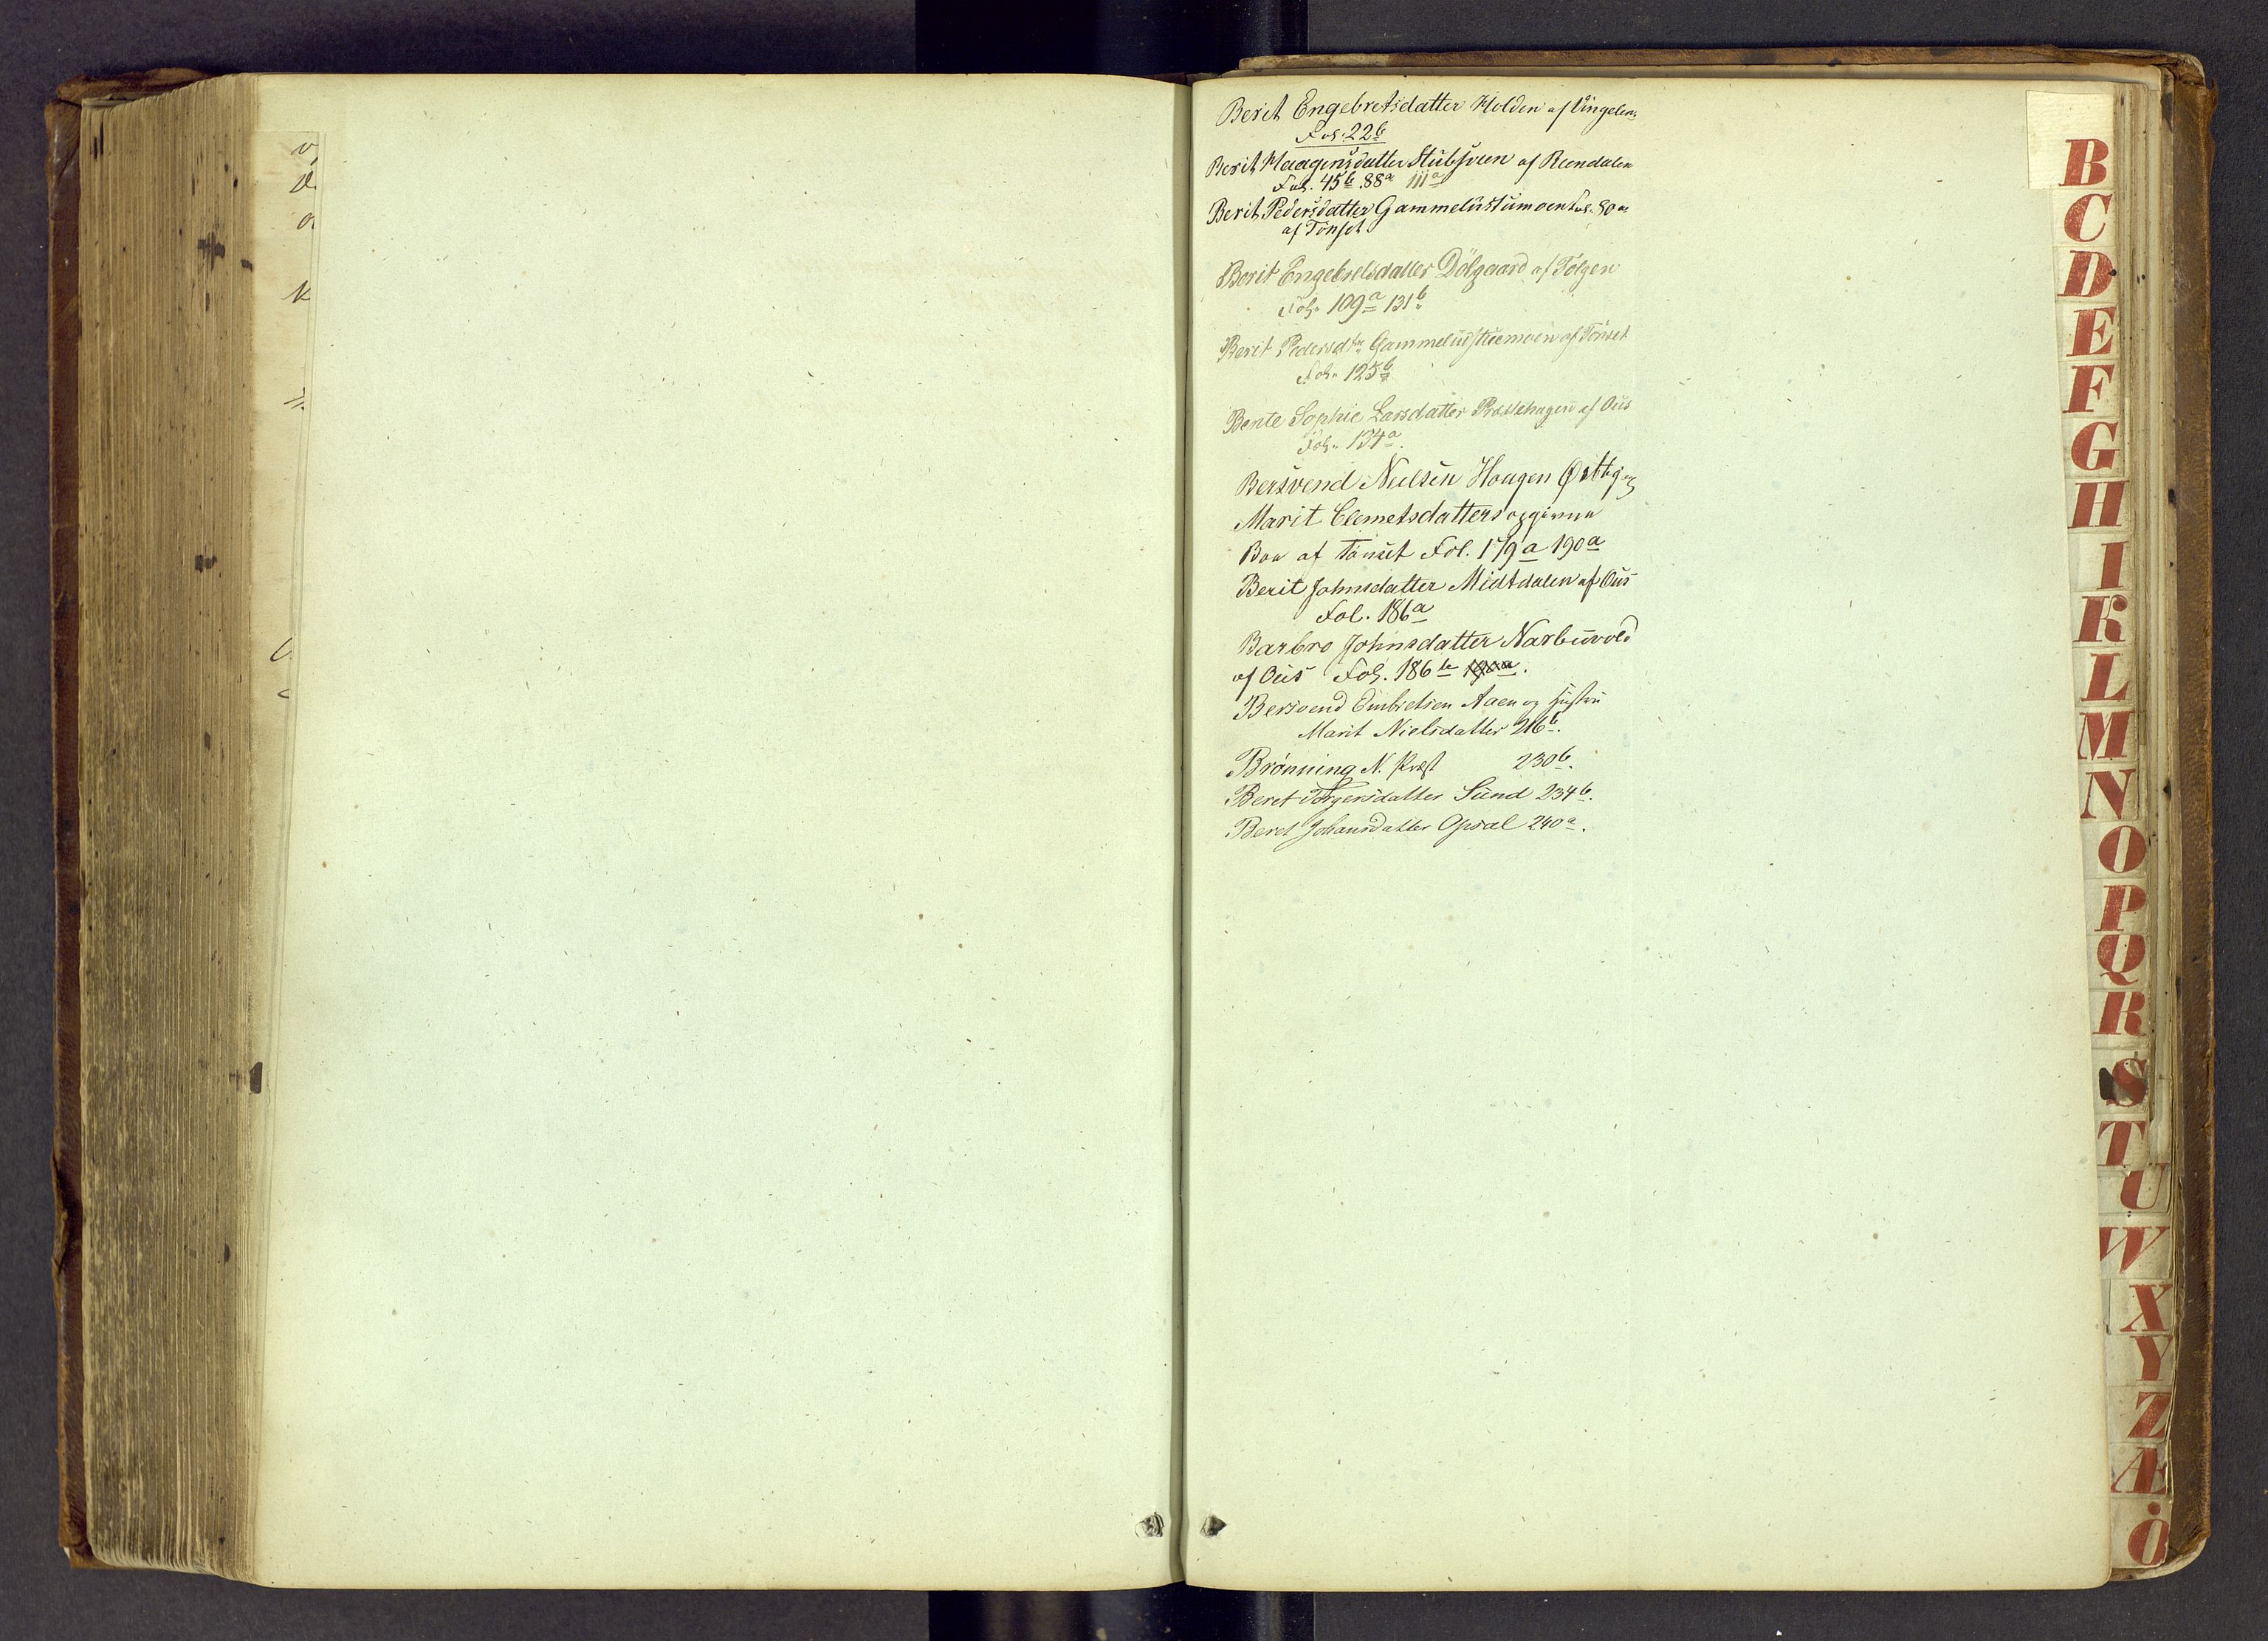 Berit Engebretsdatter Holden af Vingelen
Fol. 22b
Berit Haagensdatter Stubsveen af Rendalen
Fol. 45b 88a 111a
Berit Pedersdatter Gammelustumoen Fol. 80a
af Tönset
Berit Engebretsdatter Dölgaard af Tolgen
Fol. 109a 131b
Berit Pedersdtr Gammelustuemoen af Tönset
Fol. 125b
Bente Sophie Larsdatter Præstehagen af Ous
Fol. 134a
Bersvend Neilsen Hougen og
Marit Clemetsdatters opgivne
Boe af Tönset Fol. 179a 190a
Berit Johnsdatter Midtdalen af Ous
Fol. 186a
Barbro Johnsdatter Narbuvold
af Ous Fol. 186b 190a.
Bersvend Embretsen Aaen og Hustru
Marit Nielsdatter 216b.
Brönning N. Præst 230b.
Beret Torgersdatter Sund 234b.
Beret Johansdatter Opsal 240a.
B
C
D
E
F
G
H
I
K
L
M
N
O
P
Q
R
S
T
U
W
X
Y
Z
Æ
Ö